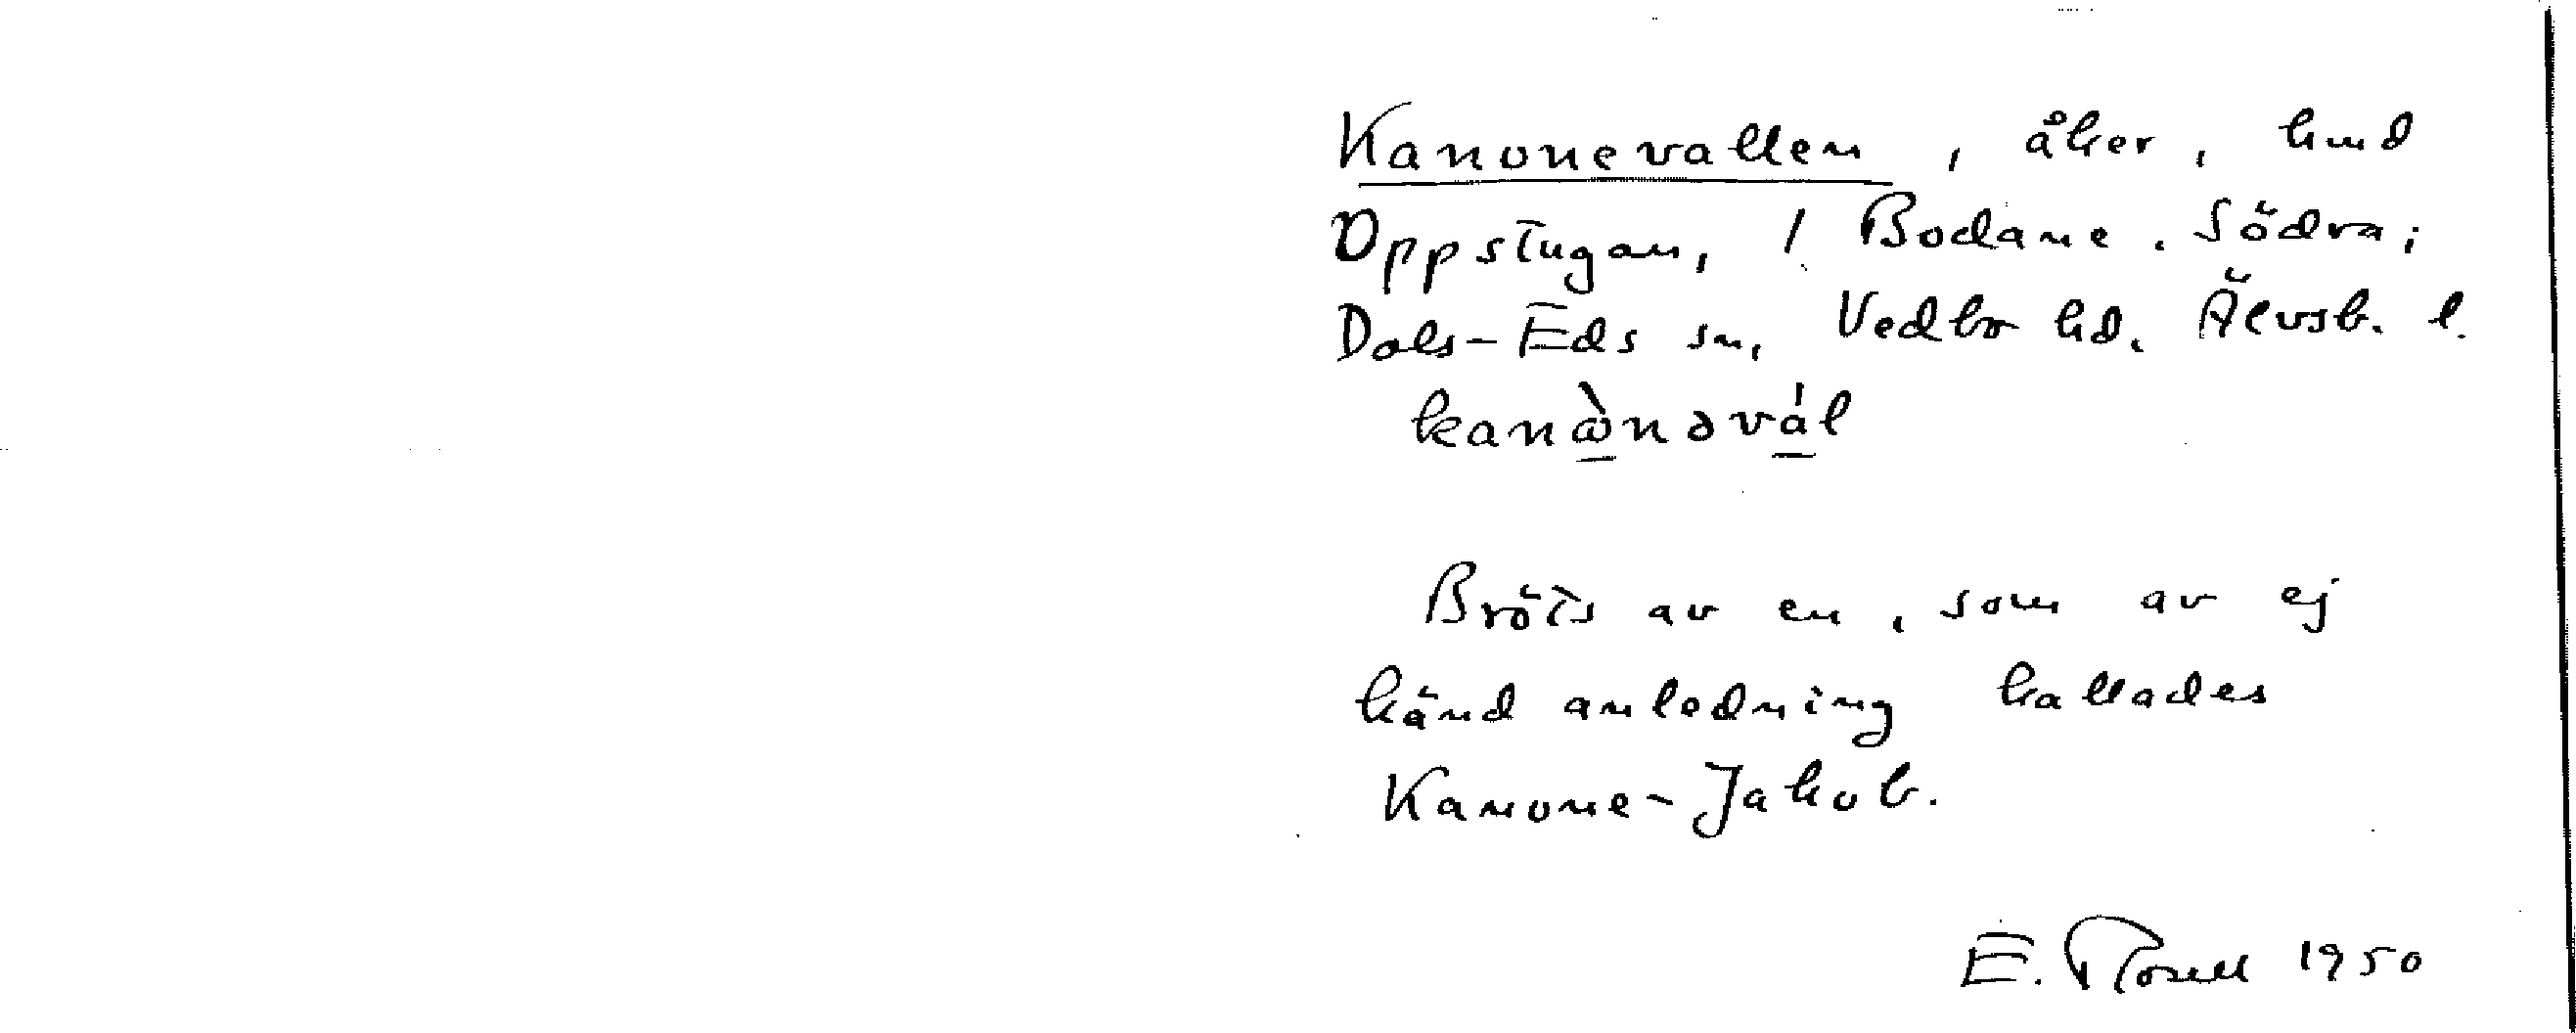 Kanonevallen, åker, hmd
Oppstugan, 1 Bodane. Södra;
Dals-Eds sn, Vedbo hd. Älvsb. l.
kanὼnəvál
Bröts av en, som av ej
känd anledning kallades
Kanone-Jakob.
E. Rosell 1950